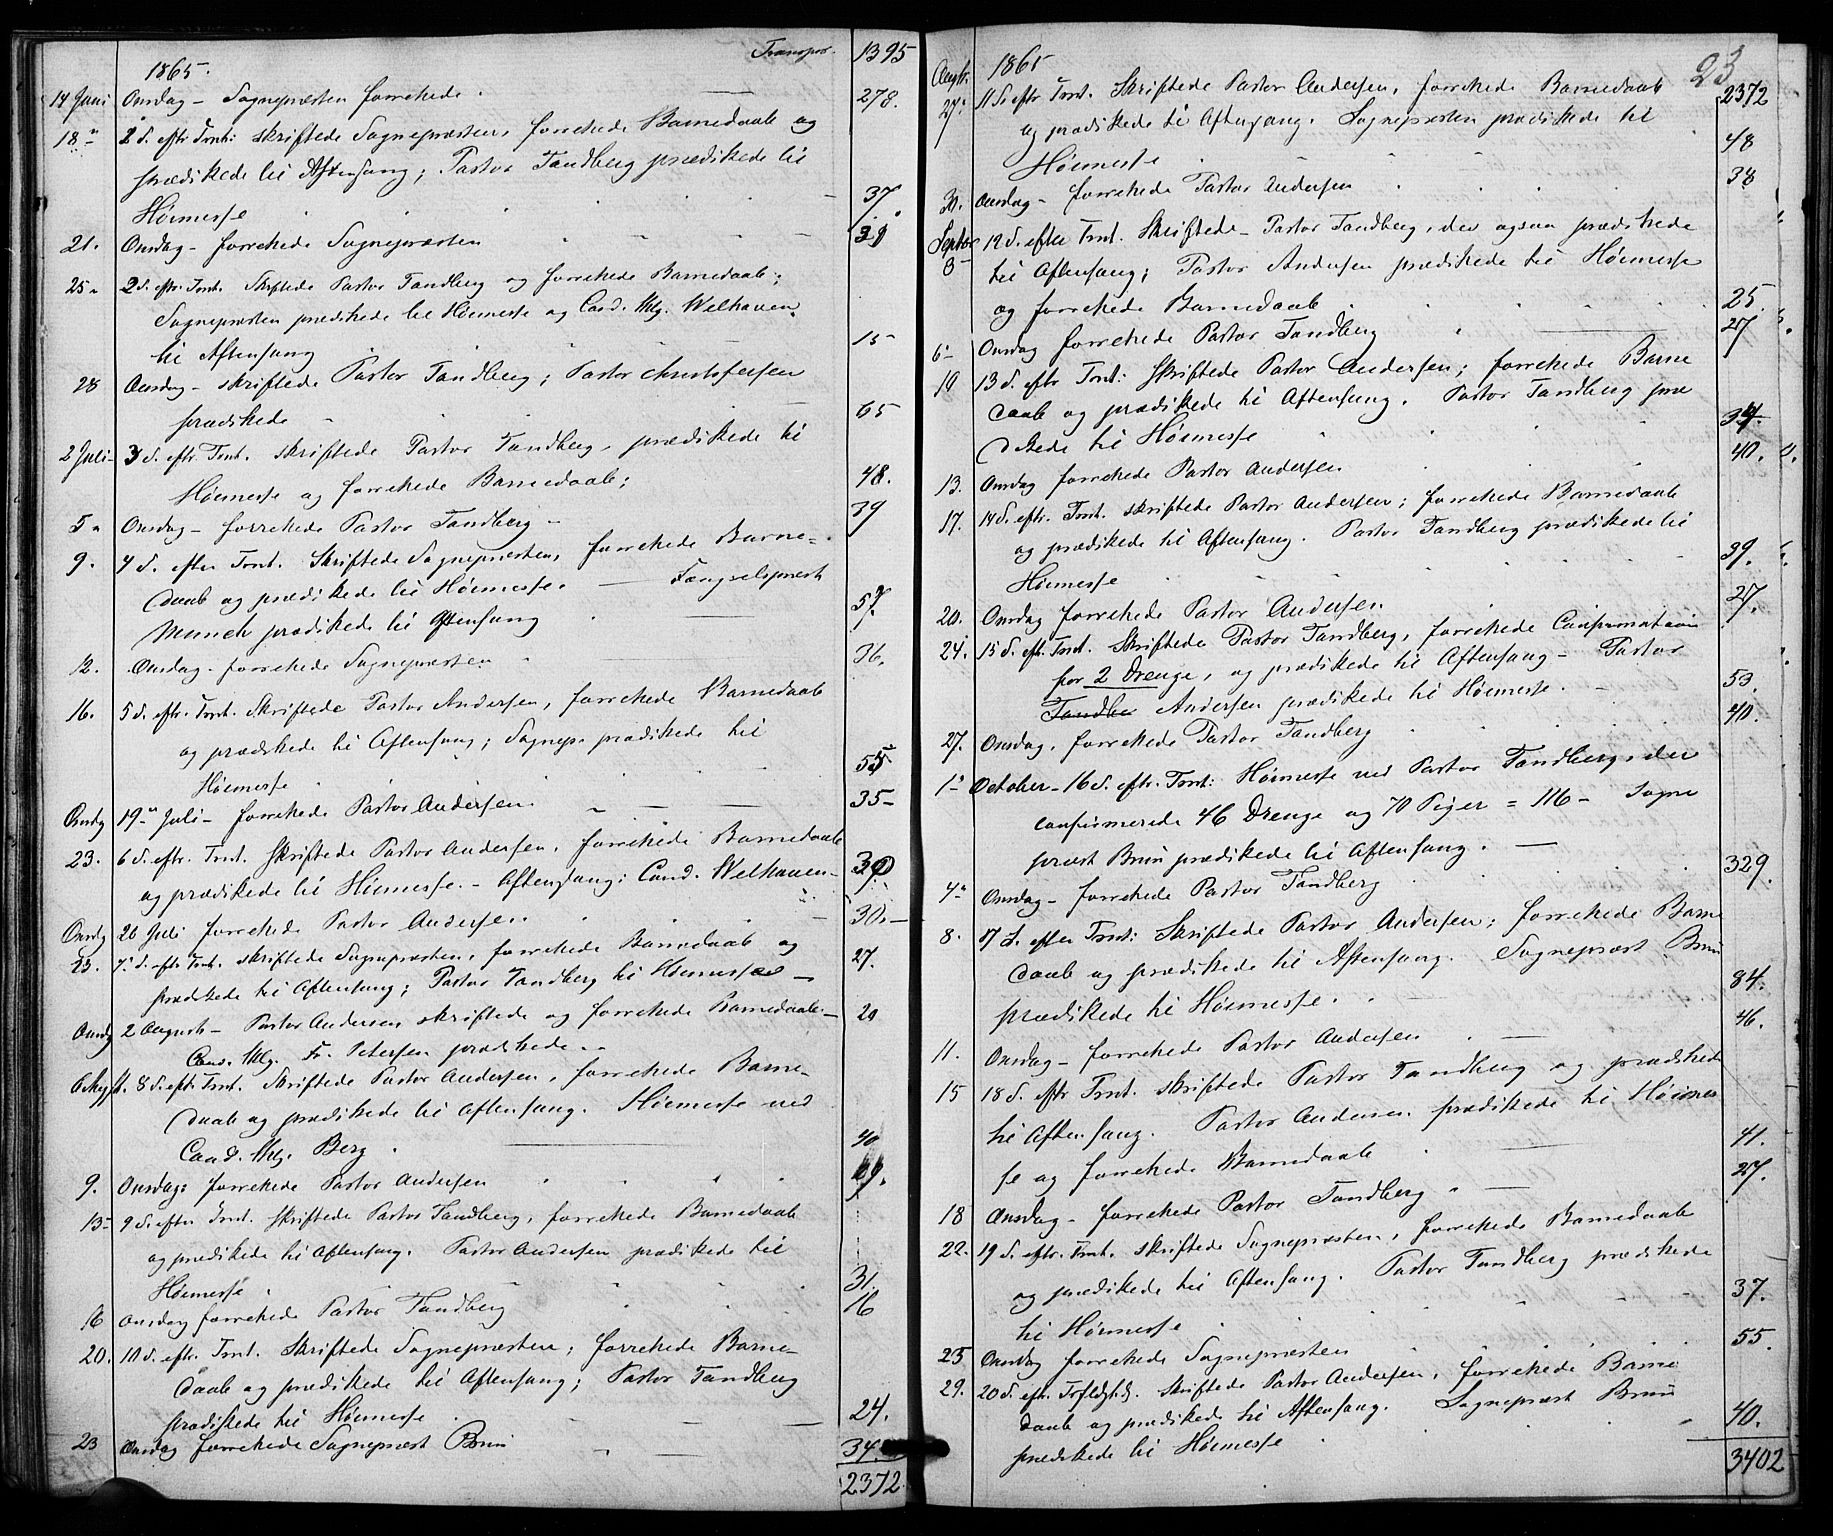 Transpor. 1395
1865.
14 Juni Onsdag – Sognepræsten forrettede. 278.
18 " 2 S. eftr Trnt: skriftede Sognepræsten, forrettede Barnedaab og
prædikede til Aftensang; Pastor Tandberg prædikede til
Høimesse 37
21. Onsdag – forrettede Sognepræsten 39
25 " 2 S. eftr. Trnt. Skriftede Pastor Tandberg og forrettede Barnedaab;
Sognepræsten prædikede til Høimesse og Cand. thlg. Welhaven
til Aftensang 15
28 Onsdag – skriftede Pastor Tandberg; Pastor Christofersen
prædikede 65
2 Juli – 3 S. eftr. Trnt. skriftede Pastor Tandberg, prædikede til
Høimesse og forrettede Barnedaab; 48.
5 " Onsdag – forrettede Pastor Tandberg – 39
9. 4 S. efter Trnt. Skriftede Sognepræsten, forrettede Barne-
daab og prædikede til Høimesse. – Fængselspræst
Munch prædikede til Aftensang 57.
12. Onsdag – forrettede Sognepræsten 36.
16. 5 S. eftr. Trnt. Skriftede Pastor Andersen, forrettede Barnedaab
og prædikede til Aftensang; Sognepr. prædikede til
Høimesse 55
Onsdg 19 " Juli – forrettede Pastor Andersen. 35 –
23. 6 S. eftr. Trnt. Skriftede Pastor Andersen, forrettede Barnedaab
og prædikede til Høimesse. – Aftensang: Cand. Welhaven – 39
Onsdg 26 Juli forrettede Pastor Andersen. 30. –
7 S. eftr Trnt. skriftede Sognepræsten, forrettede Barnedaab og 27.
prædikede til Aftensang; Pastor Tandberg til Høimesse –
Onsdg 2 August – Pastor Andersen skriftede og forrettede Barnedaab – 20
Cand. thlg. Fr. Petersen prædikede. –
6 Augst. 8 S. eftr Trnt. Skriftede Pastor Andersen, forrettede Barne-
daab og prædikede til Aftensang. Høimesse ved
Cand. thlg. Berg 40
9. Onsdag: forrettede Pastor Andersen
13 – 9 S. efter Trnt. Skriftede Pastor Tandberg, forrettede Barnedaab
og prædikede til Aftensang. Pastor Andersen prædikede til
Høimesse 31.
16 Onsdag forrettede Pastor Tandberg 16
20. 10 S. eftr. Trnt. Skriftede Sognepræsten; forrettede Barne-
daab og prædikede til Aftensang; Pastor Tandberg
prædikede til Høimesse 24.
23 Onsdag forrettede Sognepræst Brun 34.
2372
23
Augtr. 1865
27. 11 S. eftr Trnt. Skriftede Pastor Andersen, forrettede Barnedaab 2372
og prædikede til Aftensang. Sognepræsten prædikede til
Høimesse 48
30. Onsdag – forrettede Pastor Andersen 38
Septbr 3 – 12 S. efter Trnt. Skriftede – Pastor Tandberg, der ogsaa prædikede
til Aftensang; Pastor Andersen prædikede til Høimesse
og forrettede Barnedaab 25.
6 – Onsdag forrettede Pastor Tandberg 27
10 13 S. eftr Trnt: Skriftede Pastor Andersen; forrettede Barne
daab og prædikede til Aftensang. Pastor Tandberg præ
dikede til Høimesse 34.
13. Onsdag forrettede Pastor Andersen 40.
17. 14 S. eftr. Trnt. skriftede Pastor Andersen; forrettede Barnedaab
og prædikede til Aftensang. Pastor Tandberg prædikede til
Høimesse 39.
20. Onsdag forrettede Pastor Andersen. 27.
24. 15 S. eft. Trnt. Skriftede Pastor Tandberg, forrettede Confirmation
for 2 Drenge, og prædikede til Aftensang – Pastor
Tandbe Andersen prædikede til Høimesse. 53.
27. Onsdag, forrettede Pastor Tandberg 40.
1 " October – 16 S. eftr. Trnt: Høimesse ved Pastor Tandberg, der
confirmerede 46 Drenge og 70 Piger = 116 – Sogne
præst Brun prædikede til Aftensang. 329.
4 " Onsdag – forrettede Pastor Tandberg
8. 17 S. efter Trnt: Skriftede Pastor Andersen; forrettede Barne
daab og prædikede til Aftensang. Sognepræst Brun
prædikede til Høimesse. 84.
11. Onsdag – forrettede Pastor Andersen 46.
15 18 S. eftr Trnt. skriftede Pastor Tandberg og prædikede
til Aftensang. Pastor Andersen prædikede til Høimes
se og forrettede Barnedaab 41.
18 Onsdag – forrettede Pastor Tandberg 27.
22. 19 S. eftr. Trnt. skriftede Sognepræsten, forrettede Barnedaab
og prædikede til Aftensang. Pastor Tandberg prædikede
til Høimesse 37.
25 Onsdag forrettede Sognepræsten 55.
29. 20 S. eftr. Skriftede Pastor Andersen, forrettede Barne
daab og prædikede til Aftensang. Sognepræst Brun
prædikede til Høimesse 40.
3402